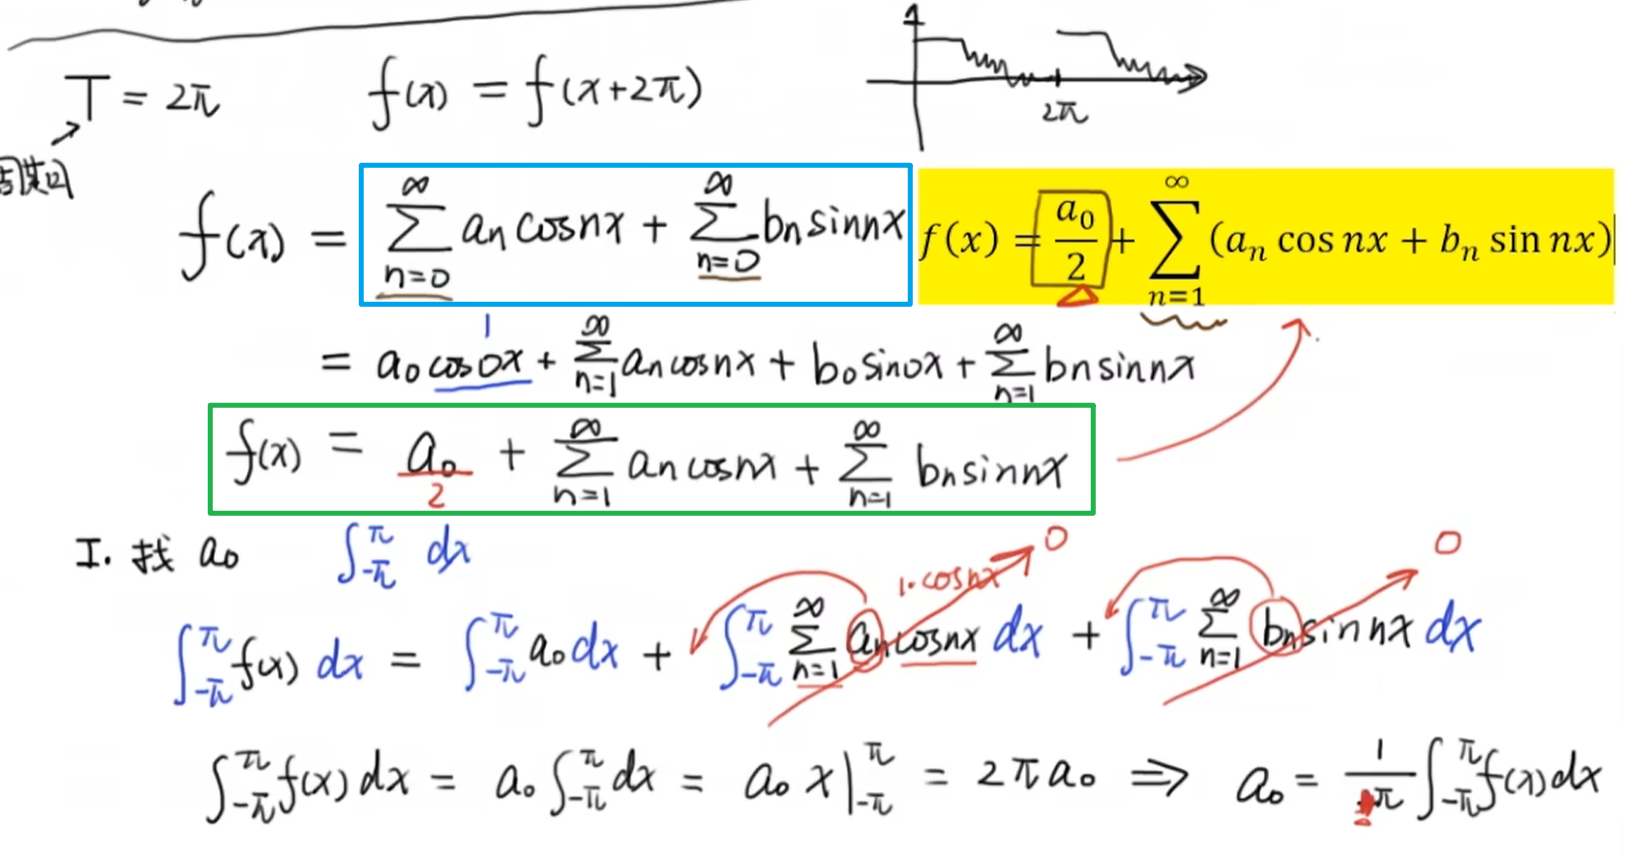 T = 2π f(x) = f(x+2π) 2π
周期
f(x) = ∑_{n=0}^{∞} aₙ cosnx + ∑_{n=0}^{∞} bₙ sinnx f(x) = a₀/2 + ∑_{n=1}^{∞} (aₙ cos nx + bₙ sin nx)
1
= a₀ cos0x + ∑_{n=1}^{∞} aₙ cosnx + b₀ sin0x + ∑_{n=1}^{∞} bₙ sinnx
f(x) = a₀/2 + ∑_{n=1}^{∞} aₙ cosnx + ∑_{n=1}^{∞} bₙ sinnx
I. 找 a₀ ∫_{-π}^{π} dx 1·cosnx 0 0
∫_{-π}^{π} f(x) dx = ∫_{-π}^{π} a₀ dx + ∫_{-π}^{π} ∑_{n=1}^{∞} aₙ cosnx dx + ∫_{-π}^{π} ∑_{n=1}^{∞} bₙ sinnx dx
∫_{-π}^{π} f(x) dx = a₀ ∫_{-π}^{π} dx = a₀ x|_{-π}^{π} = 2πa₀ ⇒ a₀ = 1/π ∫_{-π}^{π} f(x) dx